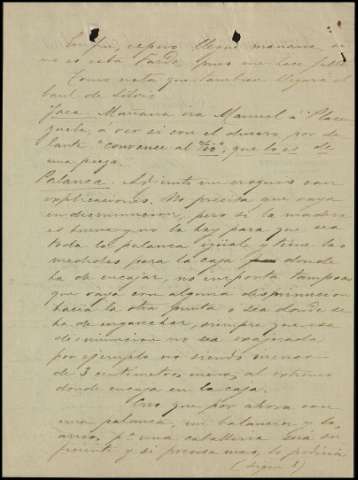 En fin, espero llegue mañana, si
no es esta tarde, pues me hace falta
Como esta que tambien llegara el
baul de
Jaca. Mañana ira Manuel a
a ver si con el dinero por de
lante "convence al tio", que lo es de
una pieza.
Palanca. Adjunto un croquis con
explicaciones. No precisa que vaya
en disminucion, pero si la madera
es buena y no la hay para que sea
toda la palanca igual y tiene las
medidas para la caja donde
ha de encajar, no importa tampoco
que vaya con alguna disminucion
hacia la otra punta o sea donde se
ha de enganchar, siempre que esa
disminucion no sea exagerada
por ejemplo no siendo menos
de 3 centimetros menos al extremo
donde encaja en la caja.
Creo que por ahora con
una palanca, un balancin y los
arreos, pª una caballeria será su
ficiente y si precisa mas, lo pediria
(sigue 3)